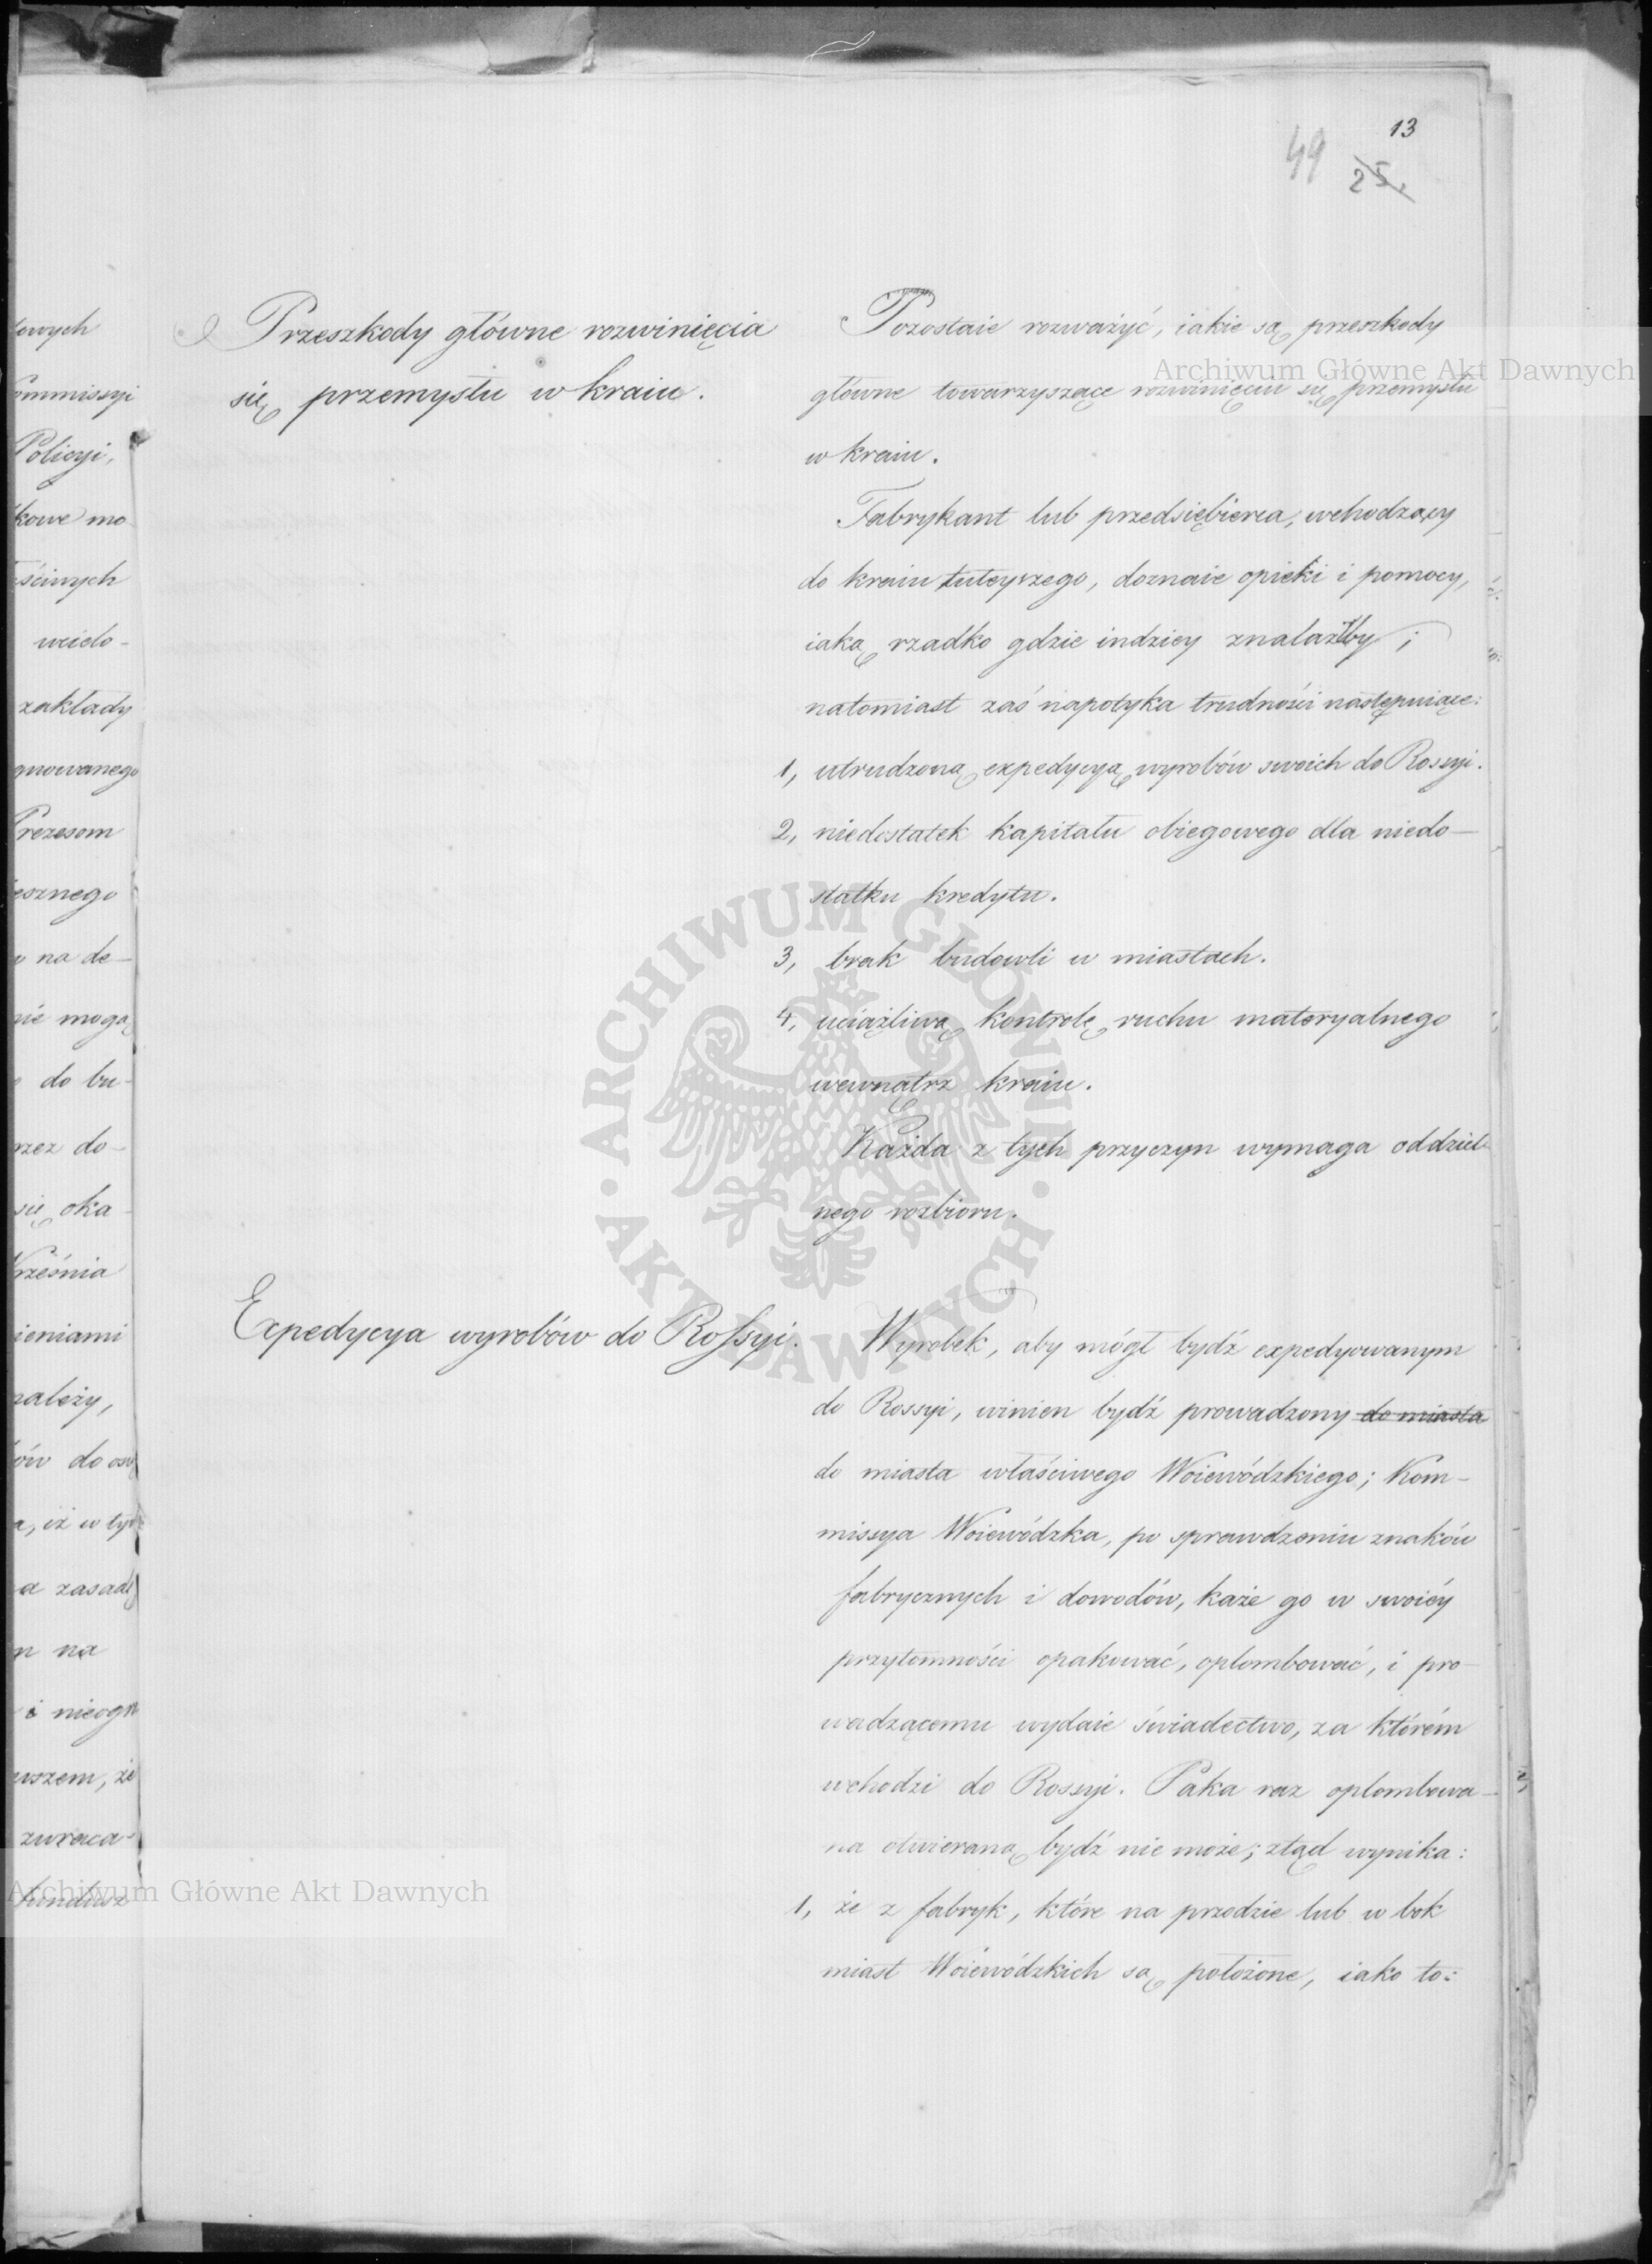 13
49
25.
Przeszkody główne rozwinięcia
się przemysłu w kraiu.
Pozostaie rozważyć, iakie są przeszkody
główne towarzyszące rozwinięciu się przemysłu
w kraiu.
Fabrykant lub przedsiębierca, wchodzący
do kraiu tuteyszego, doznaie opieki i pomocy,
iaką rzadko gdzie indziey znalazłby;
natomiast zaś napotyka trudności następuiące:
1, utrudzoną expedycyą wyrobów swoich do Rossyi.
2, niedostatek kapitału obiegowego dla niedo-
statku kredytu.
3, brak budowli w miastach.
4, uciążliwą kontrolę ruchu materyalnego
wewnątrz kraiu.
Każda z tych przyczyn wymaga oddziel-
nego rozbioru.
Expedycya wyrobów do Rossyi.
Wyrobek, aby mógł bydź expedyowanym
do Rossyi, winien bydź prowadzony do miasta
do miasta właściwego Woiewódzkiego; Kom-
missya Woiewódzka, po sprawdzeniu znaków
fabrycznych i dowodów, każe go w swoiéy
przytomności opakować, oplombować, i pro-
wadzącemu wydaie świadectwo, za którém
wchodzi do Rossyi. Paka raz oplombowa-
na otwieraną bydź nie może; ztąd wynika:
1, że z fabryk, które na przodzie lub w bok
miast Woiewódzkich są położone, iako to:
towych
ommissyi
Policyi,
kowe mo
ścinych
wielo-
zakłady
gnowanego
Prezesom
esznego
na do-
nie mogą
do bu-
rzez do-
się oka-
Września
ieniami
należy,
ów do osi
a, iż w tym
a zasad
n na
i nieogr
uszem, że
zwraca-
fundusz
Archiwum Główne Akt Dawnych
Archiwum Główne Akt Dawnych
ARCHIWUM GŁÓWNE · AKT DAWNYCH ·